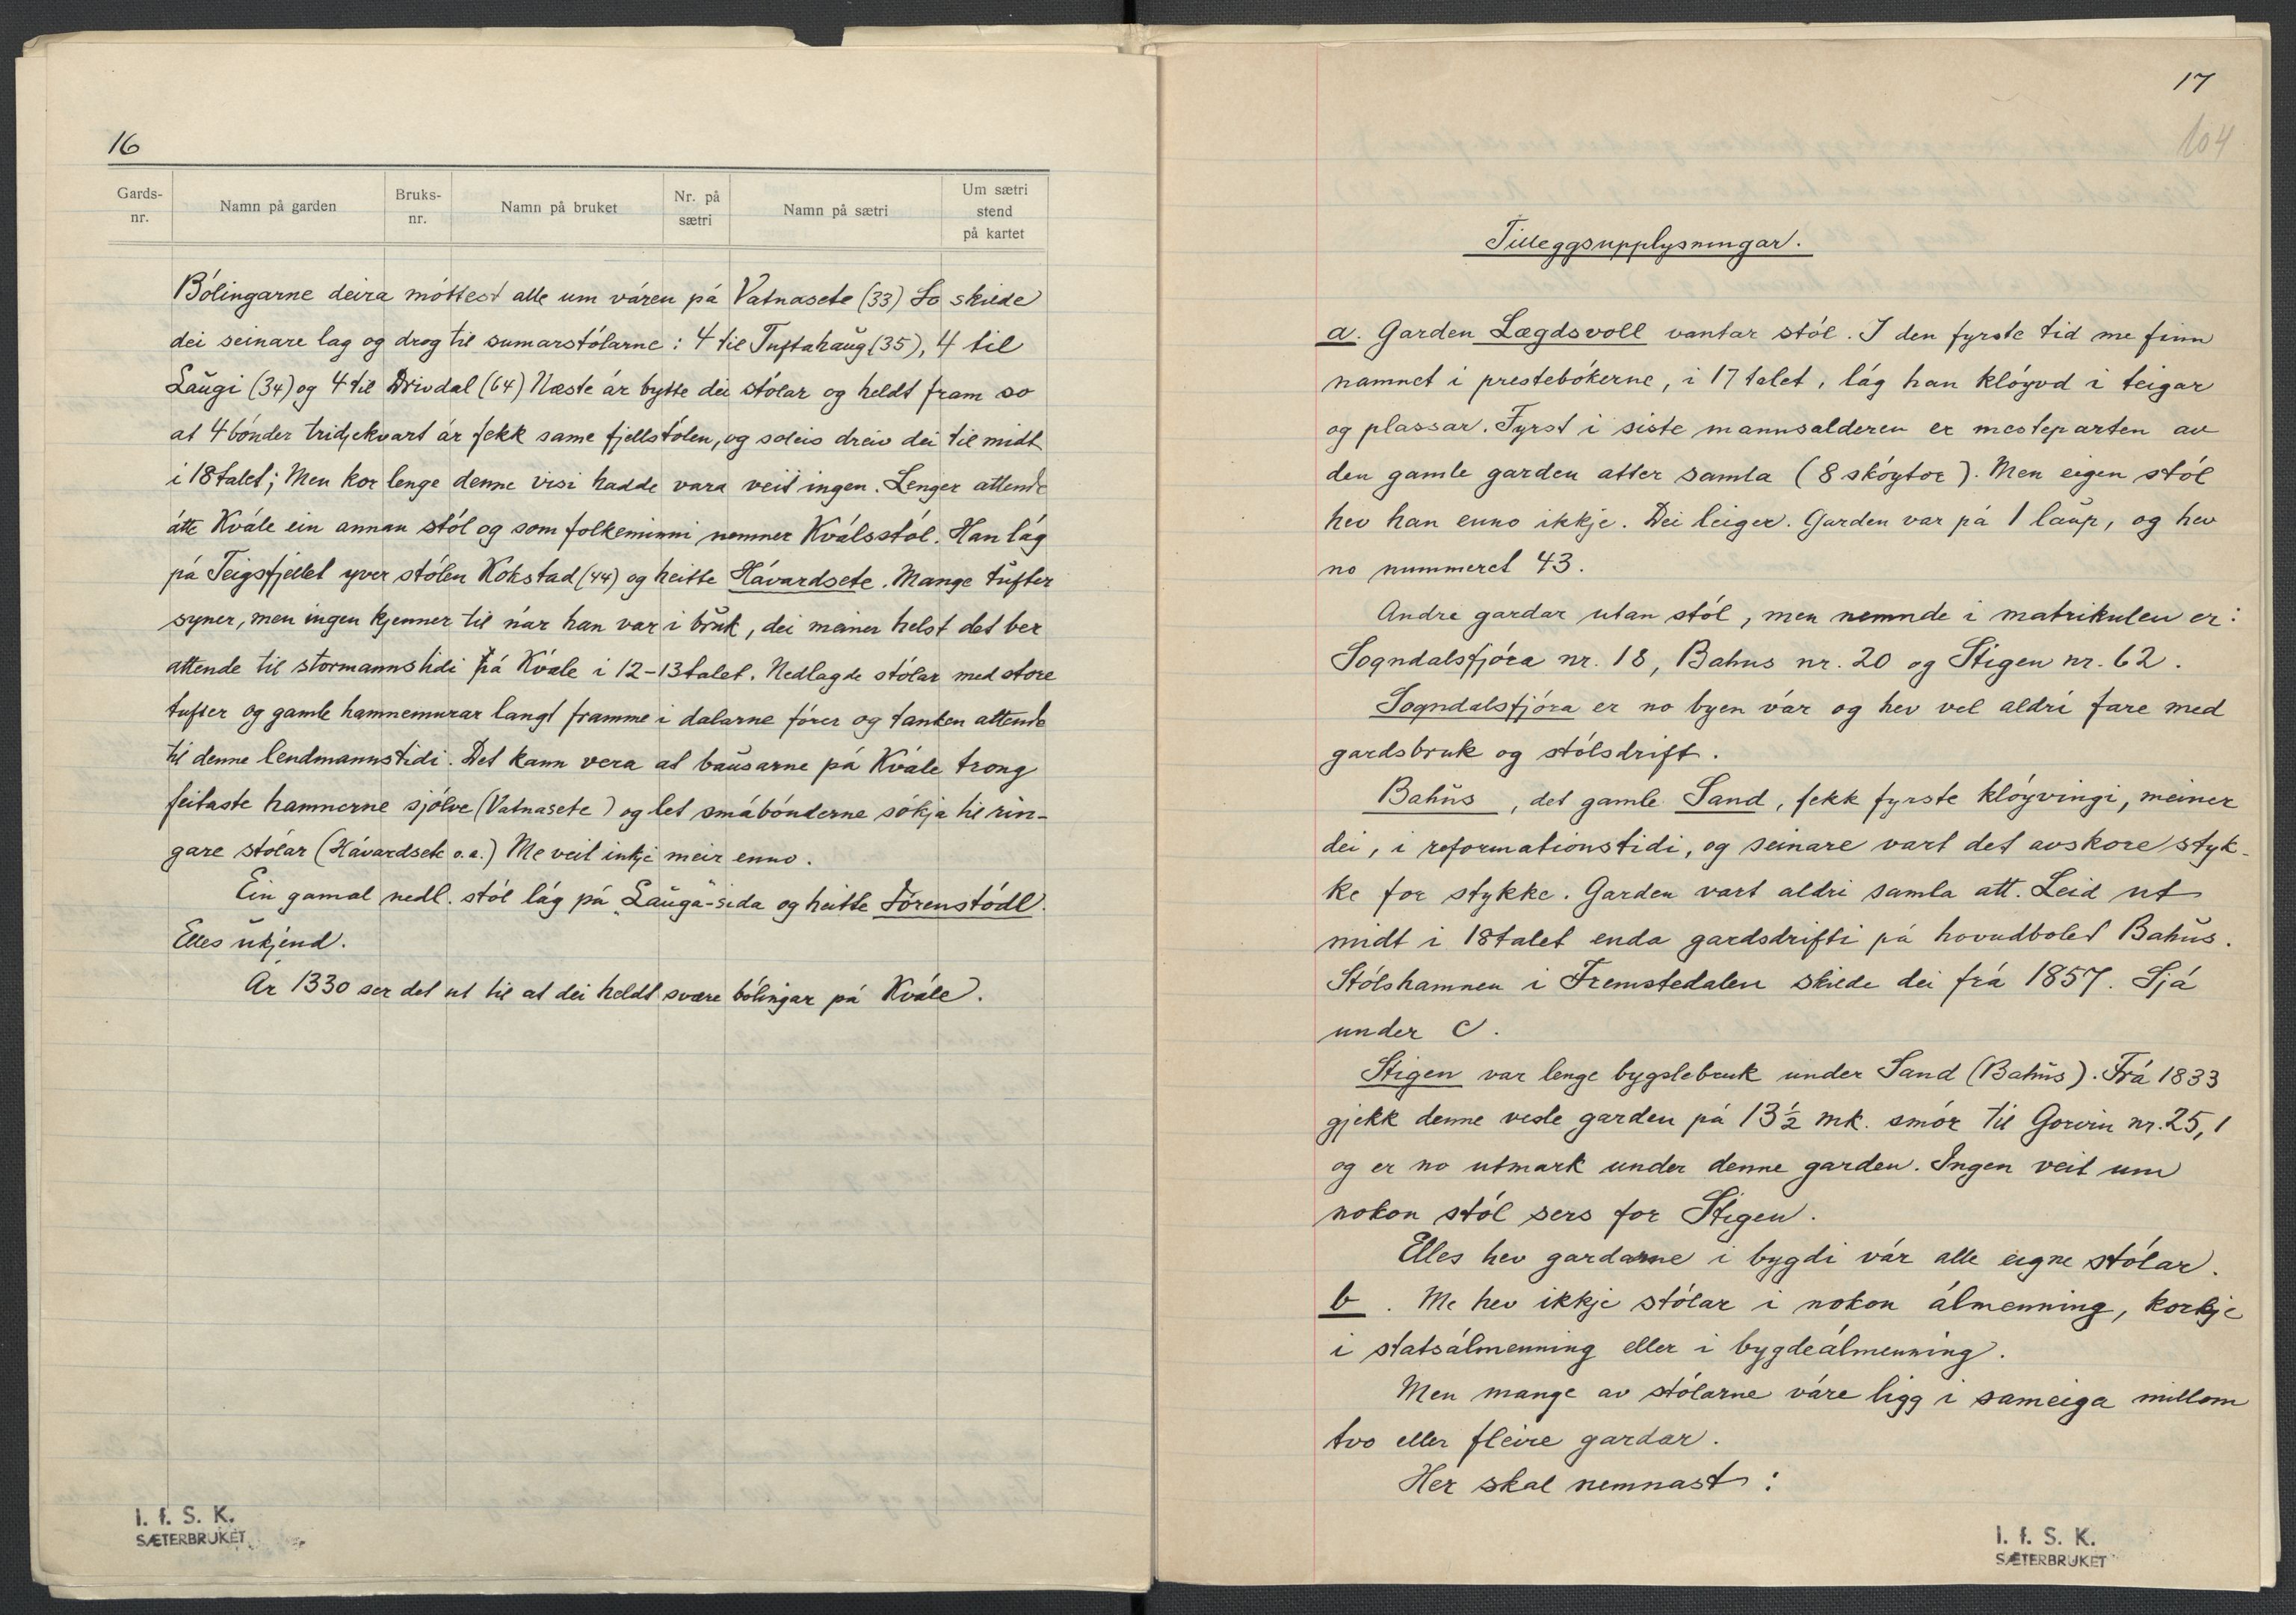 16
Gards-
nr.
Namn på garden
Bruks-
nr.
Namn på bruket
Nr. på
sætri
Namn på sætri
Um sætri
stend
på kartet
Bólingarne deira móttest alle um våren på Vatnasete (33) So skilde
dei seinare lag og drog til sumarstólarne : 4 til Tuftahaug (35), 4 til
Laŭgi (34) og 4 til Drivdal (64) Næste år bytte dei stólar og heldt fram so
at 4 bónder tridjekvart år fekk same fjellstólen, og soleis dreiv dei til midt
i 18 talet; Men kor lenge denne visi hadde vara veit ingen. Lenger attende
åtte Kvåle ein annan stól og som folkeminni nemner Kvålsstól. Han låg
på Teigsfjellet yver stólen Kokstad (44) og heitte Håvardsete. Mange tŭfter
syner, men ingen kjenner til når han var i brŭk, dei meiner helst det ber
attende til stormannstidi på Kvåle i 12-13 talet. Nedlagde stólar med store
tufter og gamle hamnemurar langt framme i dalarne fórer og tanken attende
til denne lendmannstidi. Det kann vera at baŭsarne på Kvåle trong
feitaste hamnerne sjólve (Vatnasete) og let småbónderne sókja til rin-
gare stólar (Håvardsete o.a.) Me veit inkje meir enno.
Ein gamal nedl. stól låg på „Laŭga"-sida og heitte Tórenstódl.
Elles ŭkjend.
År 1330 ser det ut til at dei heldt svære bólingar på Kvåle.
I. f. S. K.
SÆTERBRUKET
17
104
Tilleggsupplysningar.
a. Garden Lægdsvoll vantar stól. I den fyrste tid me finn
namnet i prestebókerne, i 17 talet, låg han klóyvd i teigar
og plassar. Fyrst i siste mannsalderen er mesteparten av
den gamle garden atter samla (8 skóytor). Men eigen stól
hev han enno ikkje. Dei leiger. Garden var på 1 laŭp, og hev
no nummeret 43.
Andre gardar utan stól, men nemnde i matrikulen er:
Sogndalsfjóra nr. 18, Bahus nr. 20 og Stigen nr. 62.
Sogndalsfjóra er no byen vår og hev vel aldri fare med
gardsbruk og stólsdrift.
Bahŭs, det gamle Sand, fekk fyrste klóyvingi, meiner
dei, i reformationstidi, og seinare vart det avskore styk-
ke for stykke. Garden vart aldri samla att. Leid ut
midt i 18 talet enda gardsdrifti på hovudbolet Bahŭs.
Stólshamnen i Fremstedalen skilde dei frå 1857. Sjå
under c.
Stigen var lenge bygslebruk under Sand (Bahŭs). Frå 1833
gjekk denne vesle garden på 13½ mk. smór til Gorvin nr. 25,1
og er no utmark under denne garden. Ingen veit um
nokon stól sers for Stigen.
Elles hev gardarne i bygdi vår alle eigne stólar.
b. Me hev ikkje stólar i nokon ålmenning, korkje
i statsålmenning eller i bygdeålmenning.
Men mange av stólarne våre ligg i sameiga millom
tvo eller fleire gardar.
Her skal nemnast :
I. f. S. K.
SÆTERBRUKET